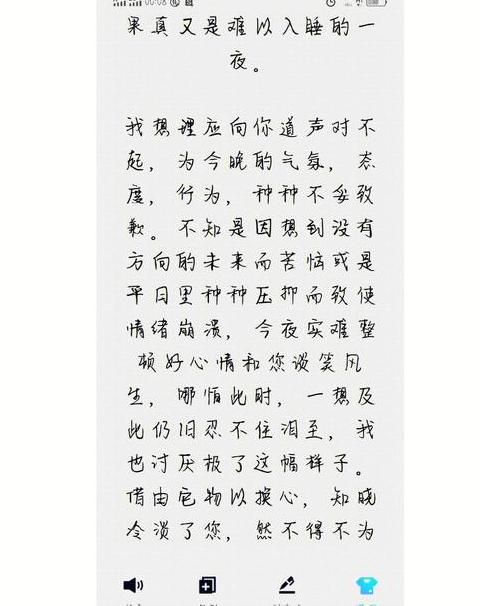 00:08
果真又是难以入睡的一
夜。
我想理应向你道声对不
起，为今晚的气氛，态
度，行为，种种不妥致
歉。不知是因想到没有
方向的未来而苦恼或是
平日里种种压抑而致使
情绪崩溃，今夜实难整
顿好心情和您谈笑风
生，哪怕此时，一想及
此仍旧忍不住泪至，我
也讨厌极了这幅样子。
借由它物以换心，知晓
冷淡了您，然不得不为